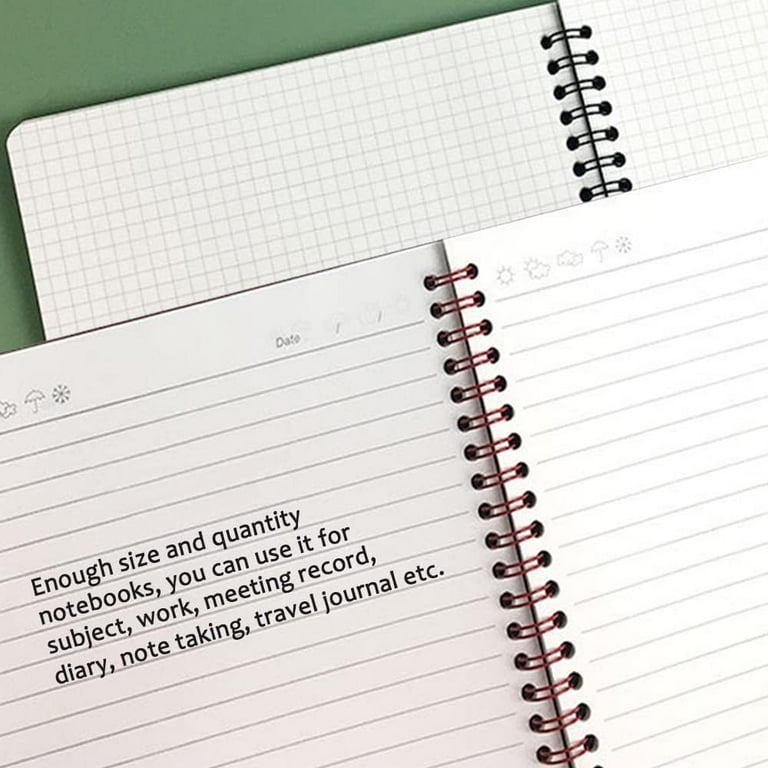 Date / /
Enough size and quantity
notebooks, you can use it for
subject, work, meeting record,
diary, note taking, travel journal etc.